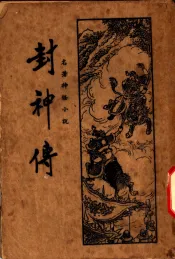 名著神怪小說
封神傳